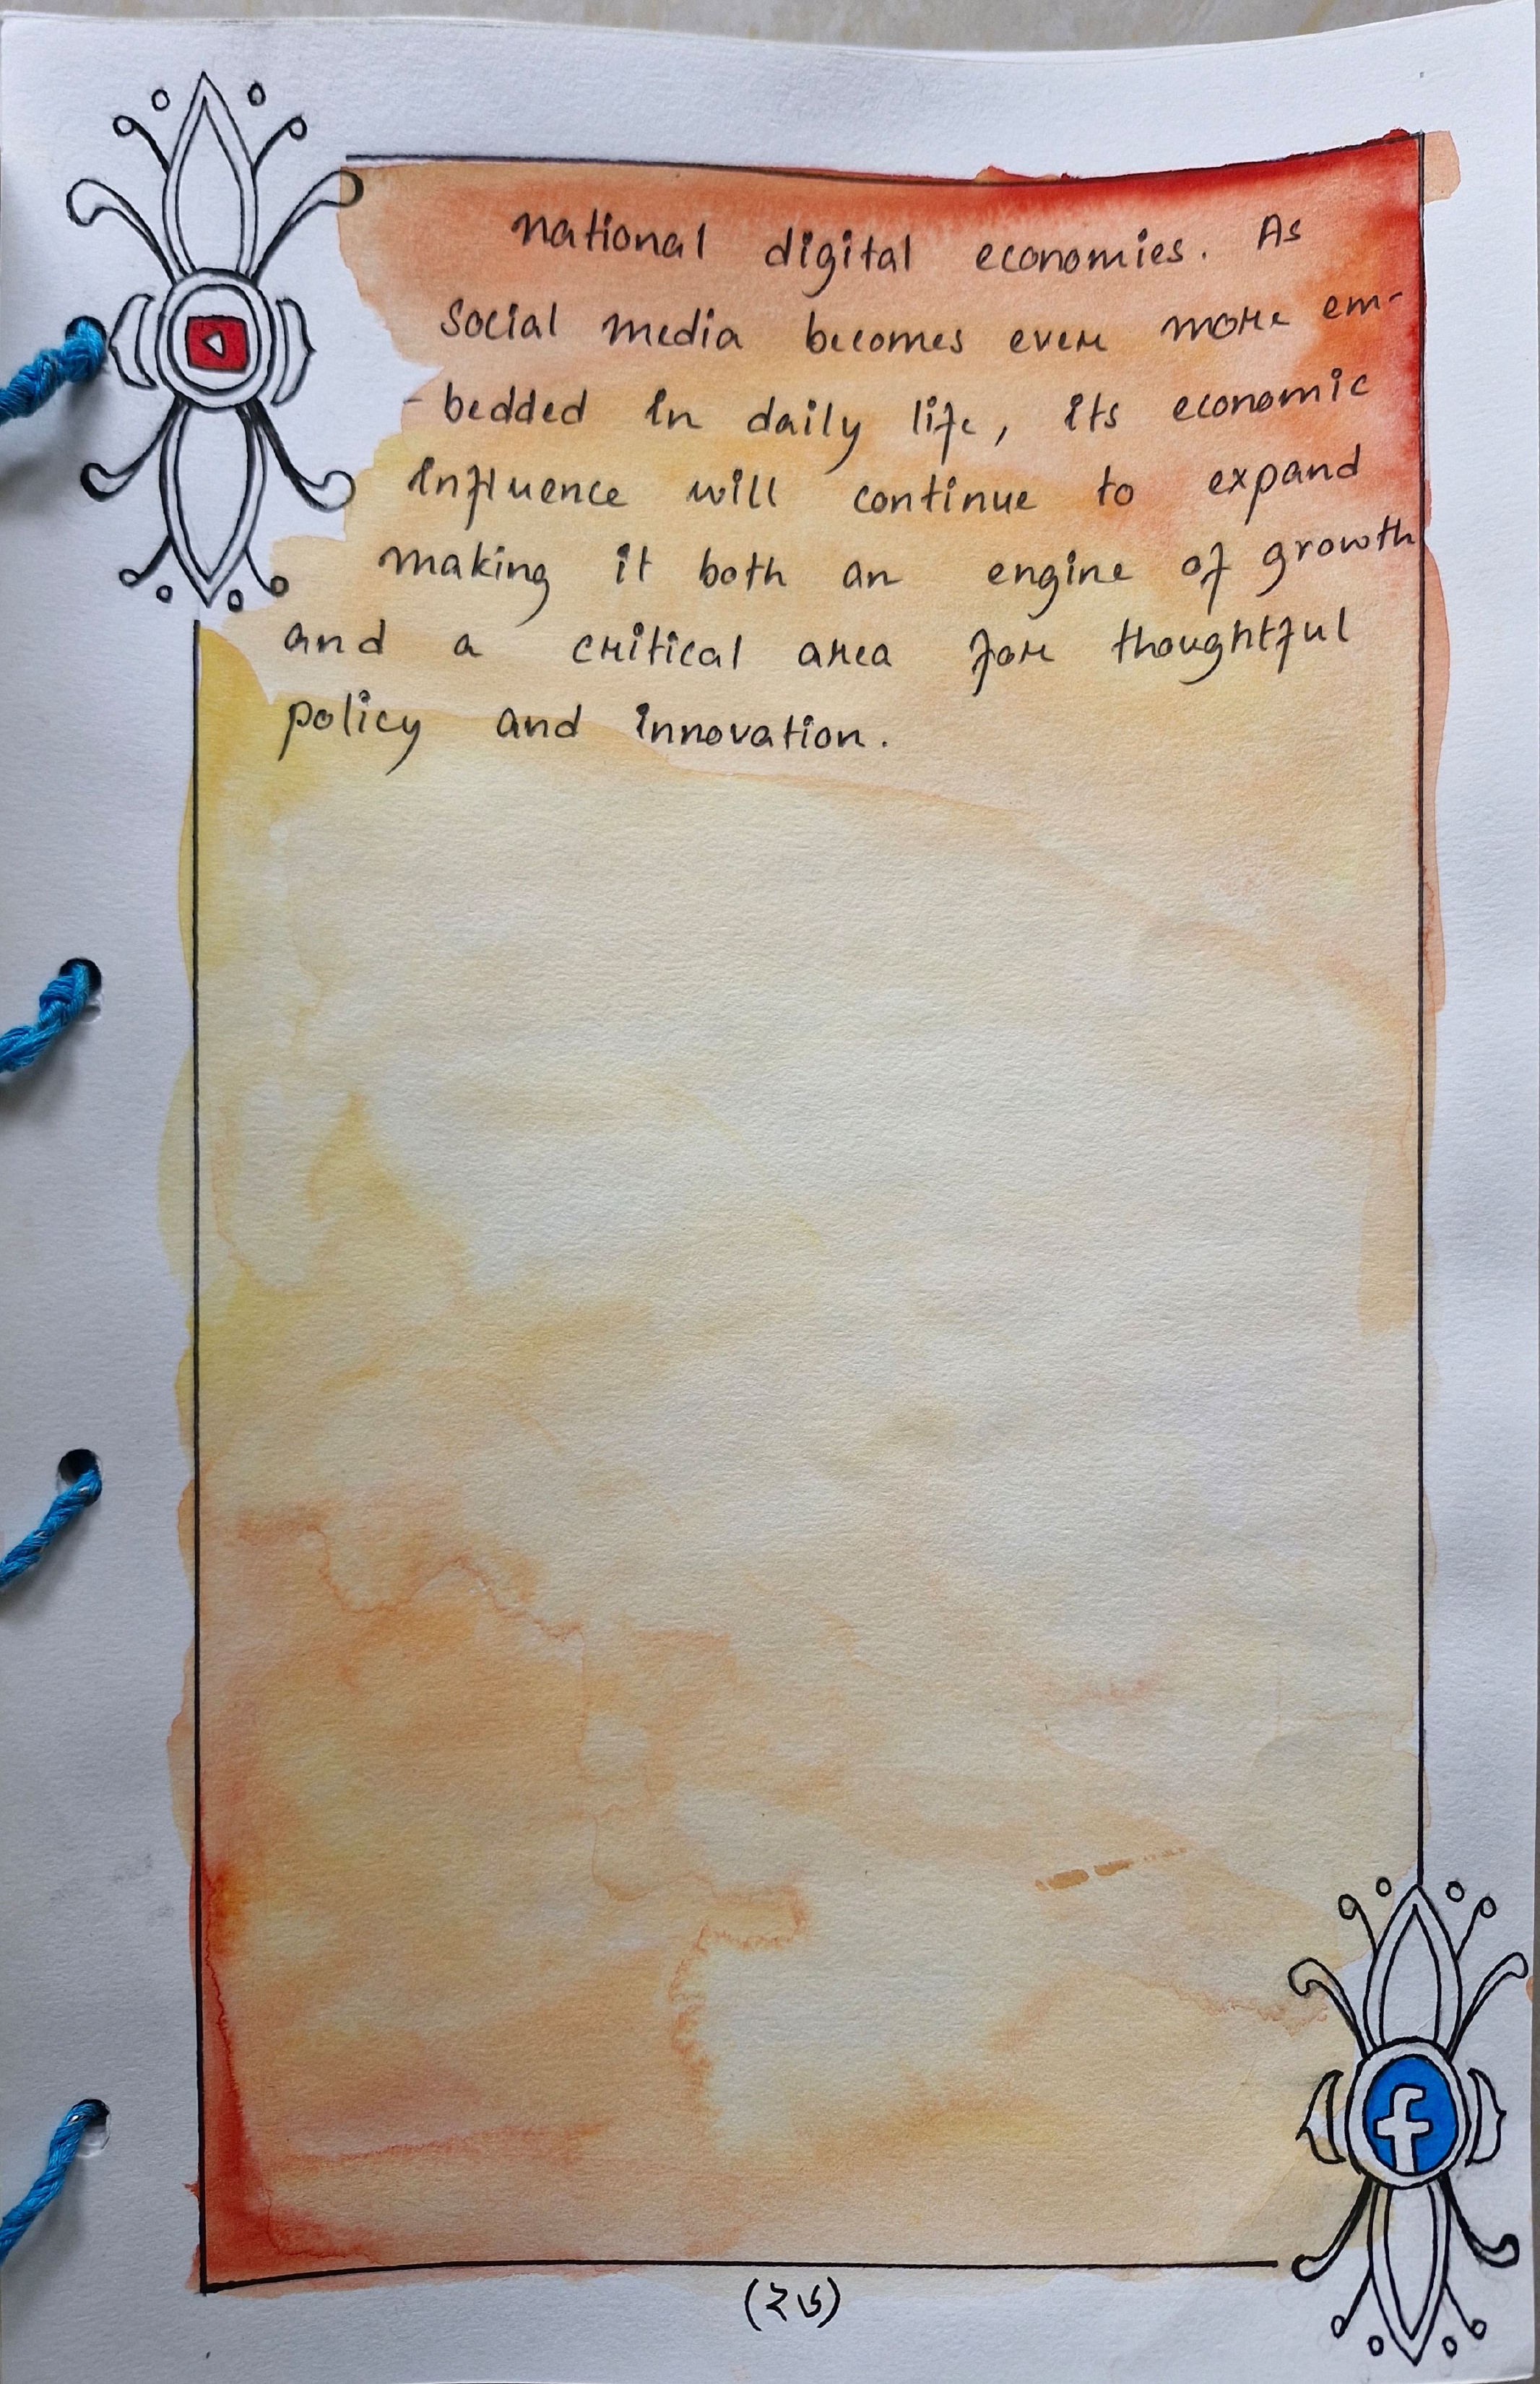 national digital economies. As
social media becomes ever more em-
-bedded in daily life, its economic
influence will continue to expand
making it both an engine of growth
and a critical area for thoughtful
policy and innovation.
f